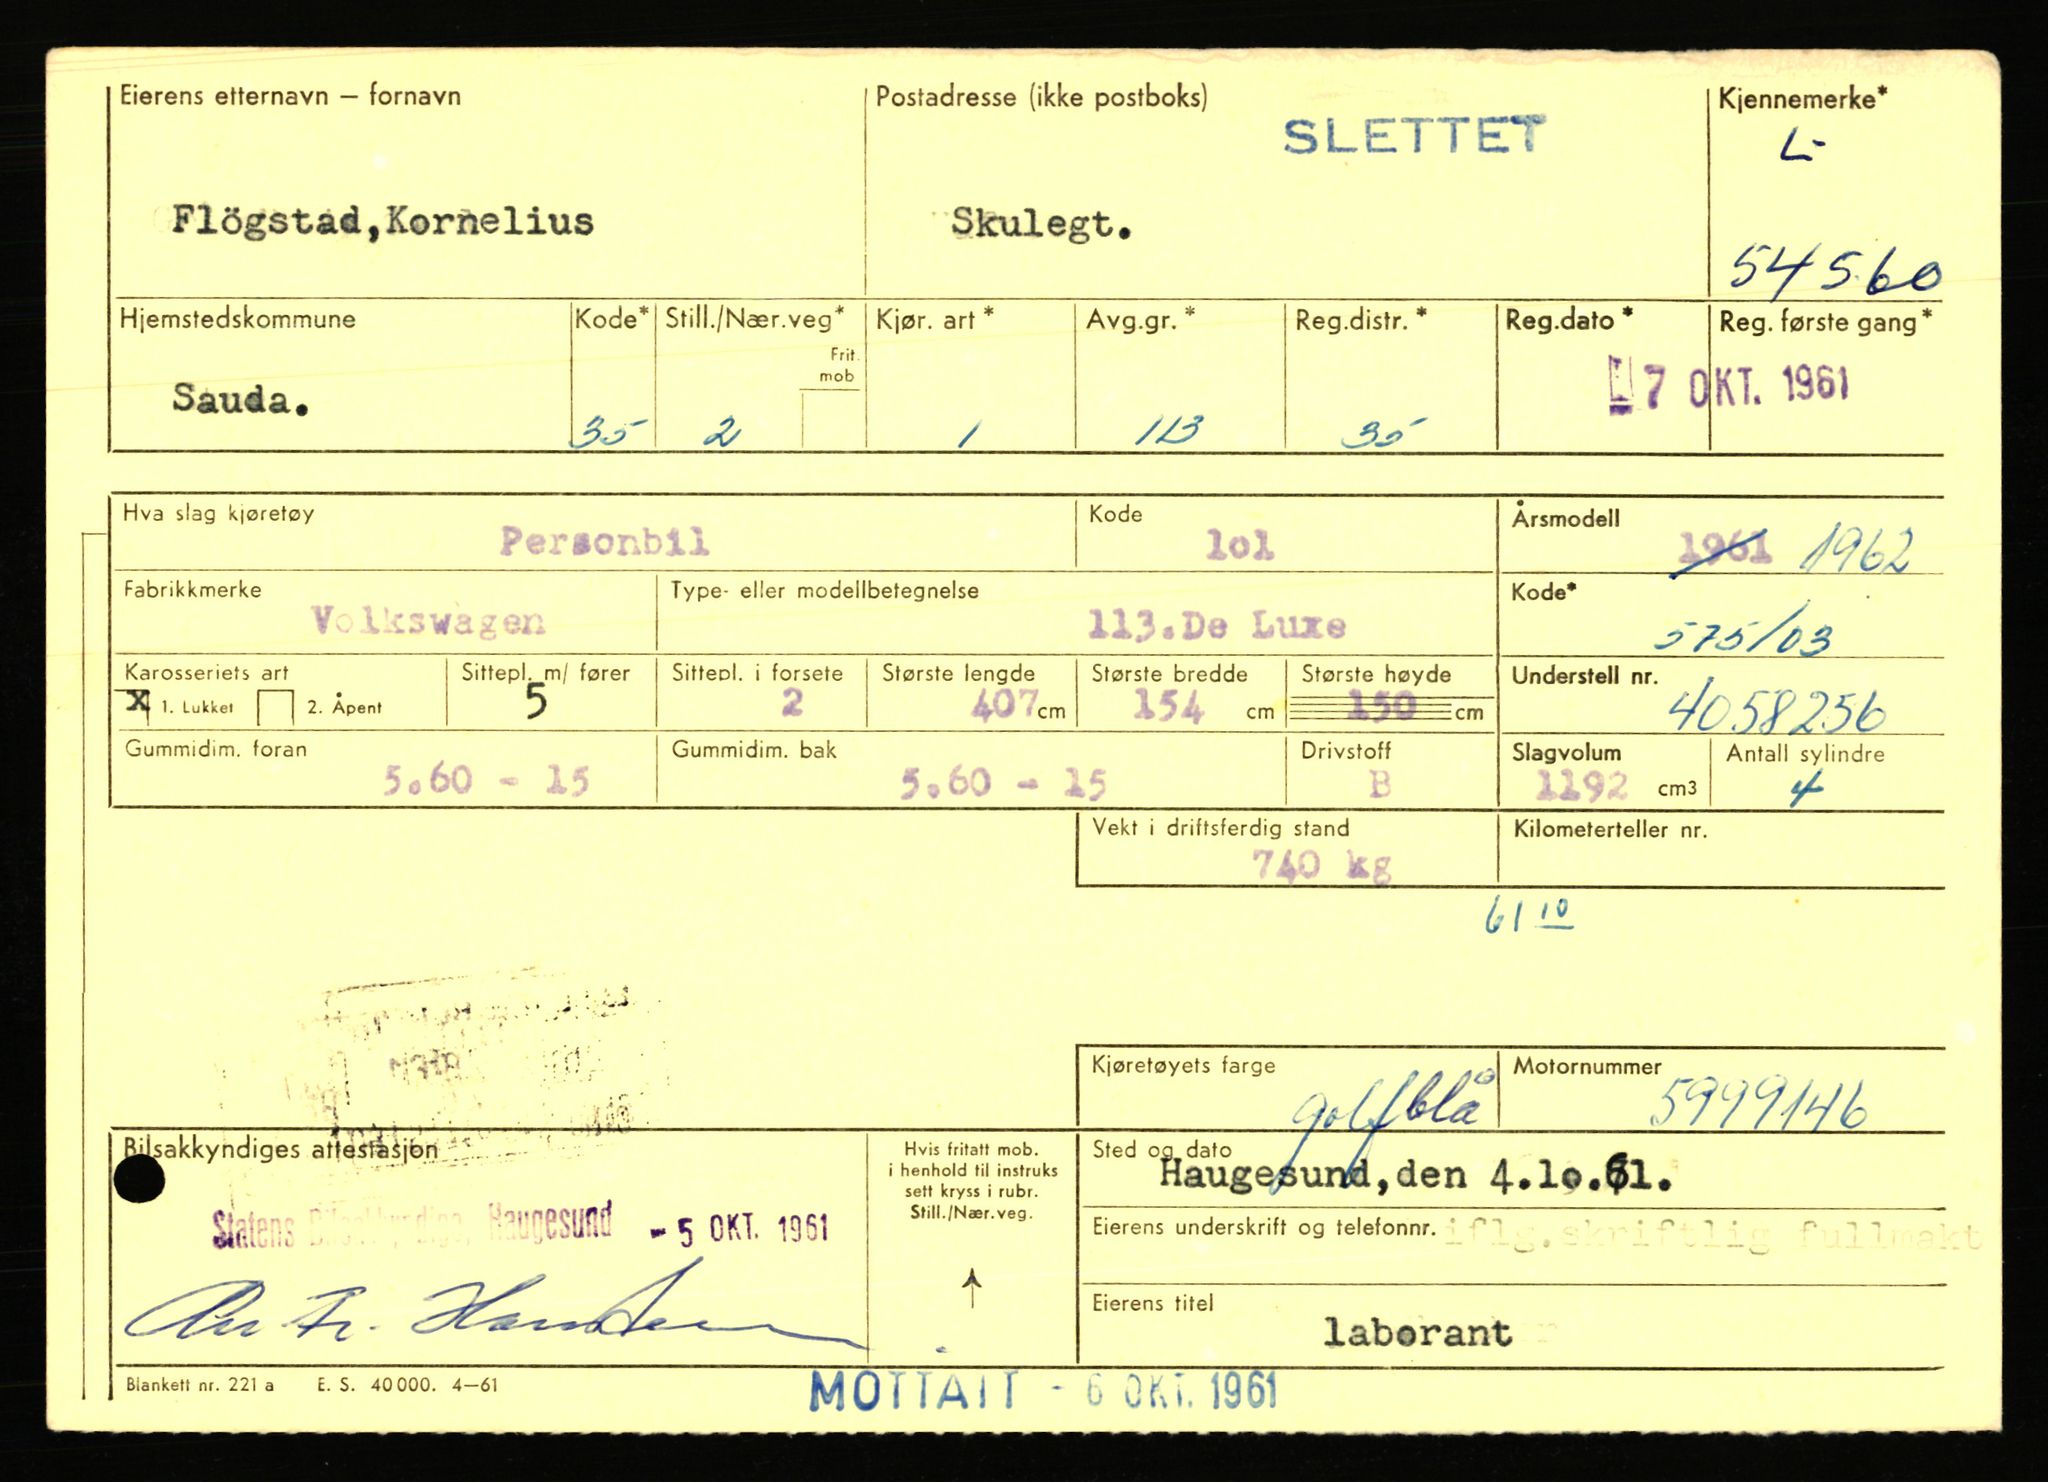 Eierens etternavn – fornavn Postadresse (ikke postboks) Kjennemerke*
SLETTET L-
Flögstad,Kornelius Skulegt.
54560
Hjemstedskommune Kode* Still./Nær.veg* Kjør. art* Avg.gr.* Reg.distr.* Reg.dato* Reg. første gang*
Frit. mob
7 OKT. 1961
Sauda. 35 2 1 113 35
Hva slag kjøretøy Kode Årsmodell
Personbil lol 1961 1962
Fabrikkmerke Type- eller modellbetegnelse Kode*
Volkswagen 113.De Luxe 575/03
Karosseriets art Sittepl. m/ fører Sittepl. i forsete Største lengde Største bredde Største høyde Understell nr.
X 1. Lukket 2. Åpent 5 2 407 cm 154 cm 150 cm 4058256
Gummidim. foran Gummidim. bak Drivstoff Slagvolum Antall sylindre
5.60 - 15 5.60 - 15 B 1192 cm3 4
Vekt i driftsferdig stand Kilometerteller nr.
740 kg
61 10
Kjøretøyets farge Motornummer
golfblå 5999146
Bilsakkyndiges attestasjon
Hvis fritatt mob.
i henhold til instruks
sett kryss i rubr.
Still./Nær.veg.
Sted og dato
Haugesund,den 4.lo.61.
Statens Bilsakkyndige, Haugesund - 5 OKT. 1961
Eierens underskrift og telefonnr. iflg.skriftlig fullmakt
Eierens titel
laborant
Blankett nr. 221 a E. S. 40000. 4–61
MOTTATT - 6 OKT. 1961